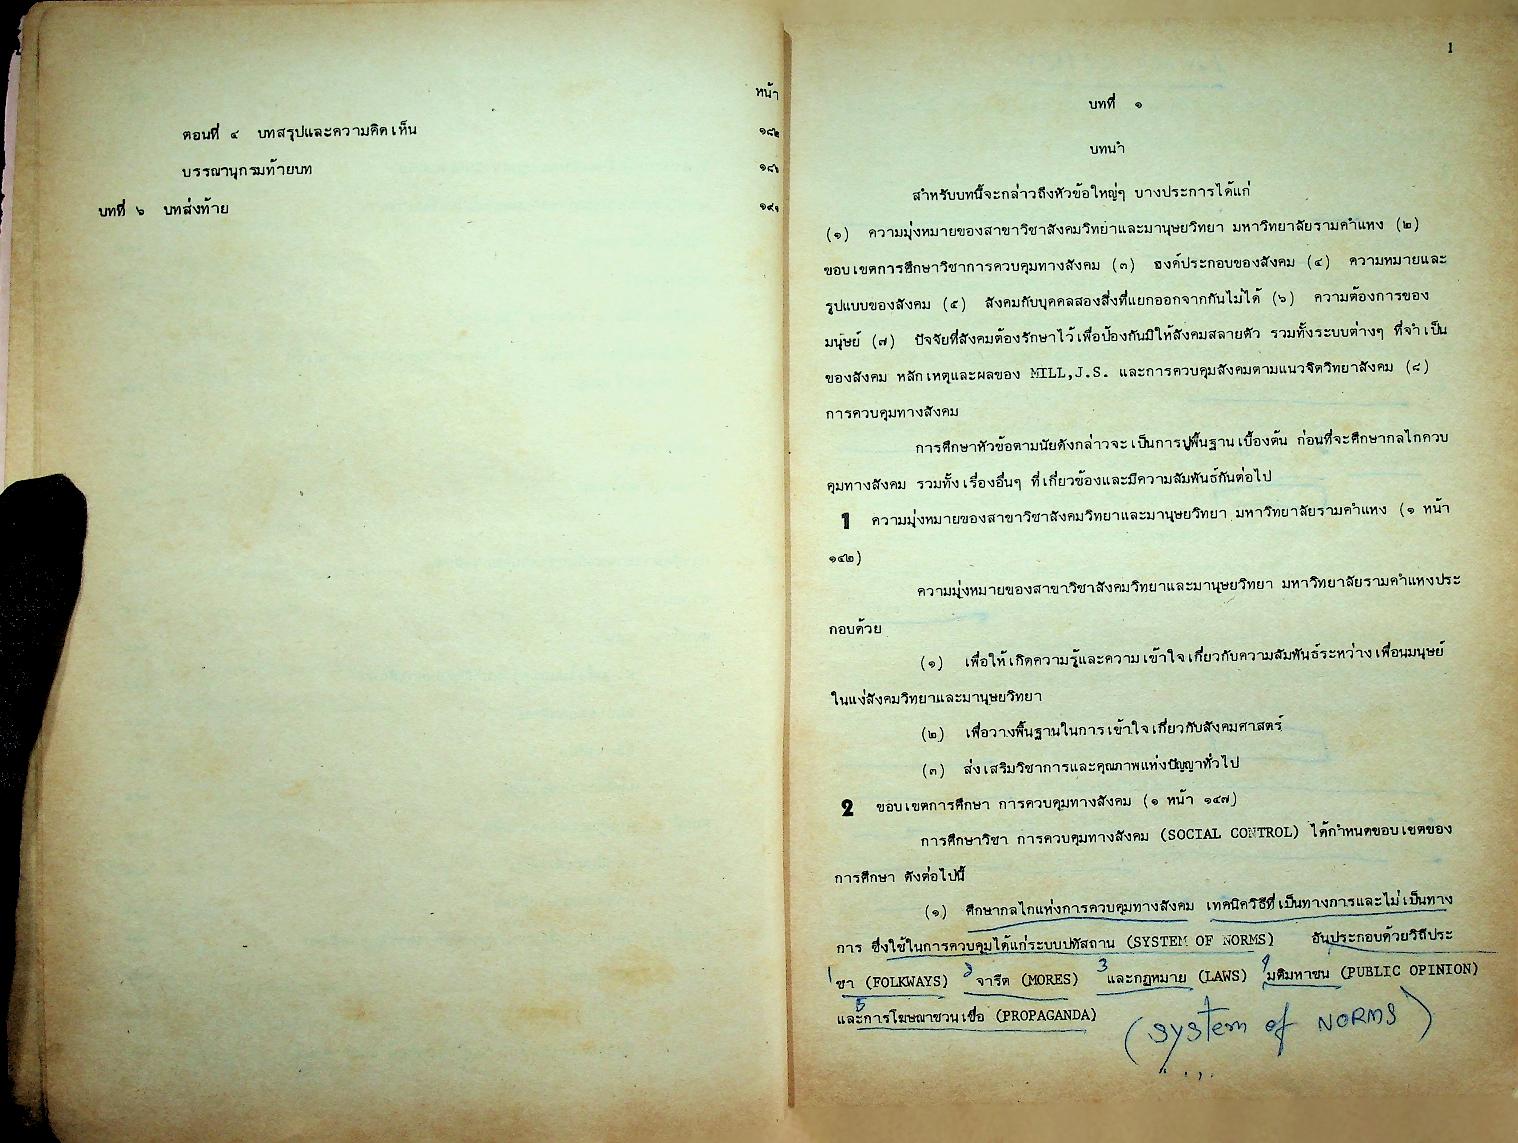 หน้า
ตอนที่ ๔ บทสรุปและความคิดเห็น ๑๘๒
บรรณานุกรมท้ายบท
บทที่ ๖ บทส่งท้าย
1
บทที่ ๑
บทนำ
สำหรับบทนี้จะกล่าวถึงหัวข้อใหญ่ๆ บางประการได้แก่
(๑) ความมุ่งหมายของสาขาวิชาสังคมวิทยาและมานุษยวิทยา มหาวิทยาลัยรามคำแหง (๒)
ขอบเขตการศึกษาวิชาการควบคุมทางสังคม (๓) องค์ประกอบของสังคม (๔) ความหมายและ
รูปแบบของสังคม (๕) สังคมกับบุคคลสองสิ่งที่แยกออกจากกันไม่ได้ (๖) ความต้องการของ
มนุษย์ (๗) ปัจจัยที่สังคมต้องรักษาไว้เพื่อป้องกันมิให้สังคมสลายตัว รวมทั้งระบบต่างๆ ที่จำเป็น
ของสังคม หลักเหตุและผลของ MILL,J.S. และการควบคุมสังคมตามแนวจิตวิทยาสังคม (๘)
การควบคุมทางสังคม
การศึกษาหัวข้อตามนัยดังกล่าวจะเป็นการปูพื้นฐานเบื้องต้น ก่อนที่จะศึกษากลไกควบ
คุมทางสังคม รวมทั้งเรื่องอื่นๆ ที่เกี่ยวข้องและมีความสัมพันธ์กันต่อไป
1 ความมุ่งหมายของสาขาวิชาสังคมวิทยาและมานุษยวิทยา มหาวิทยาลัยรามคำแหง (๑ หน้า
๑๔๒)
ความมุ่งหมายของสาขาวิชาสังคมวิทยาและมานุษยวิทยา มหาวิทยาลัยรามคำแหงประ
กอบด้วย
(๑) เพื่อให้เกิดความรู้และความเข้าใจเกี่ยวกับความสัมพันธ์ระหว่างเพื่อนมนุษย์
ในแง่สังคมวิทยาและมานุษยวิทยา
(๒) เพื่อวางพื้นฐานในการเข้าใจเกี่ยวกับสังคมศาสตร์
(๓) ส่งเสริมวิชาการและคุณภาพแห่งปัญญาทั่วไป
2 ขอบเขตการศึกษา การควบคุมทางสังคม (๑ หน้า ๑๔๗)
การศึกษาวิชา การควบคุมทางสังคม (SOCIAL CONTROL) ได้กำหนดขอบเขตของ
การศึกษา ดังต่อไปนี้
(๑) ศึกษากลไกแห่งการควบคุมทางสังคม เทคนิควิธีที่เป็นทางการและไม่เป็นทาง
การ ซึ่งใช้ในการควบคุมได้แก่ระบบปทัสถาน (SYSTEM OF NORMS) อันประกอบด้วยวิถีประ
1 ชา (FOLKWAYS) 2 จารีต (MORES) 3 และกฎหมาย (LAWS) 4 มติมหาชน (PUBLIC OPINION)
5 และการโฆษณาชวนเชื่อ (PROPAGANDA)
(System of NORMS)